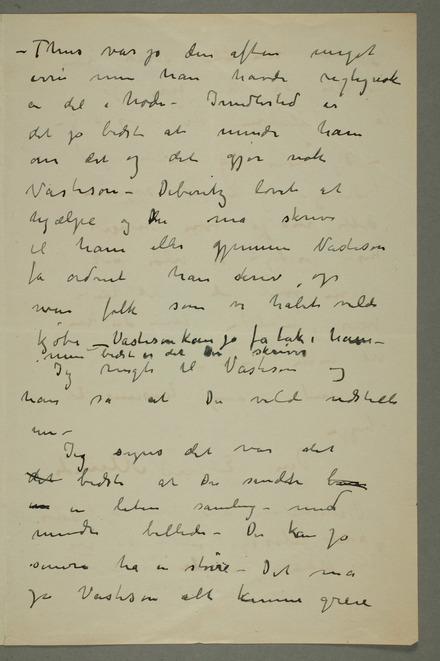 – Thiis var jo den aften meget
ivrig men han havde rigtignok
en del i hode – Imidlertid er
det jo bedst at minde ham
om det og det gjør nok
Vasteson – Diberitz lovte at
hjælpe og Du må skrive
til ham eller gjennem Vasteson
få ordnet han skrev, også
noen folk som vi håbet vilde
kjøbe – Vasteson kan jo få tak i ham –
men bedst er det Du skriver
Jeg ringte til Vasteson og
han sa at Du vilde udstille
nu –
Jeg synes det var det
det bedste at Du sendte
en liten samling – med
mindre billeder – Du kan jo
senere ha en større – Det må
jo Vasteson alt kunne greie